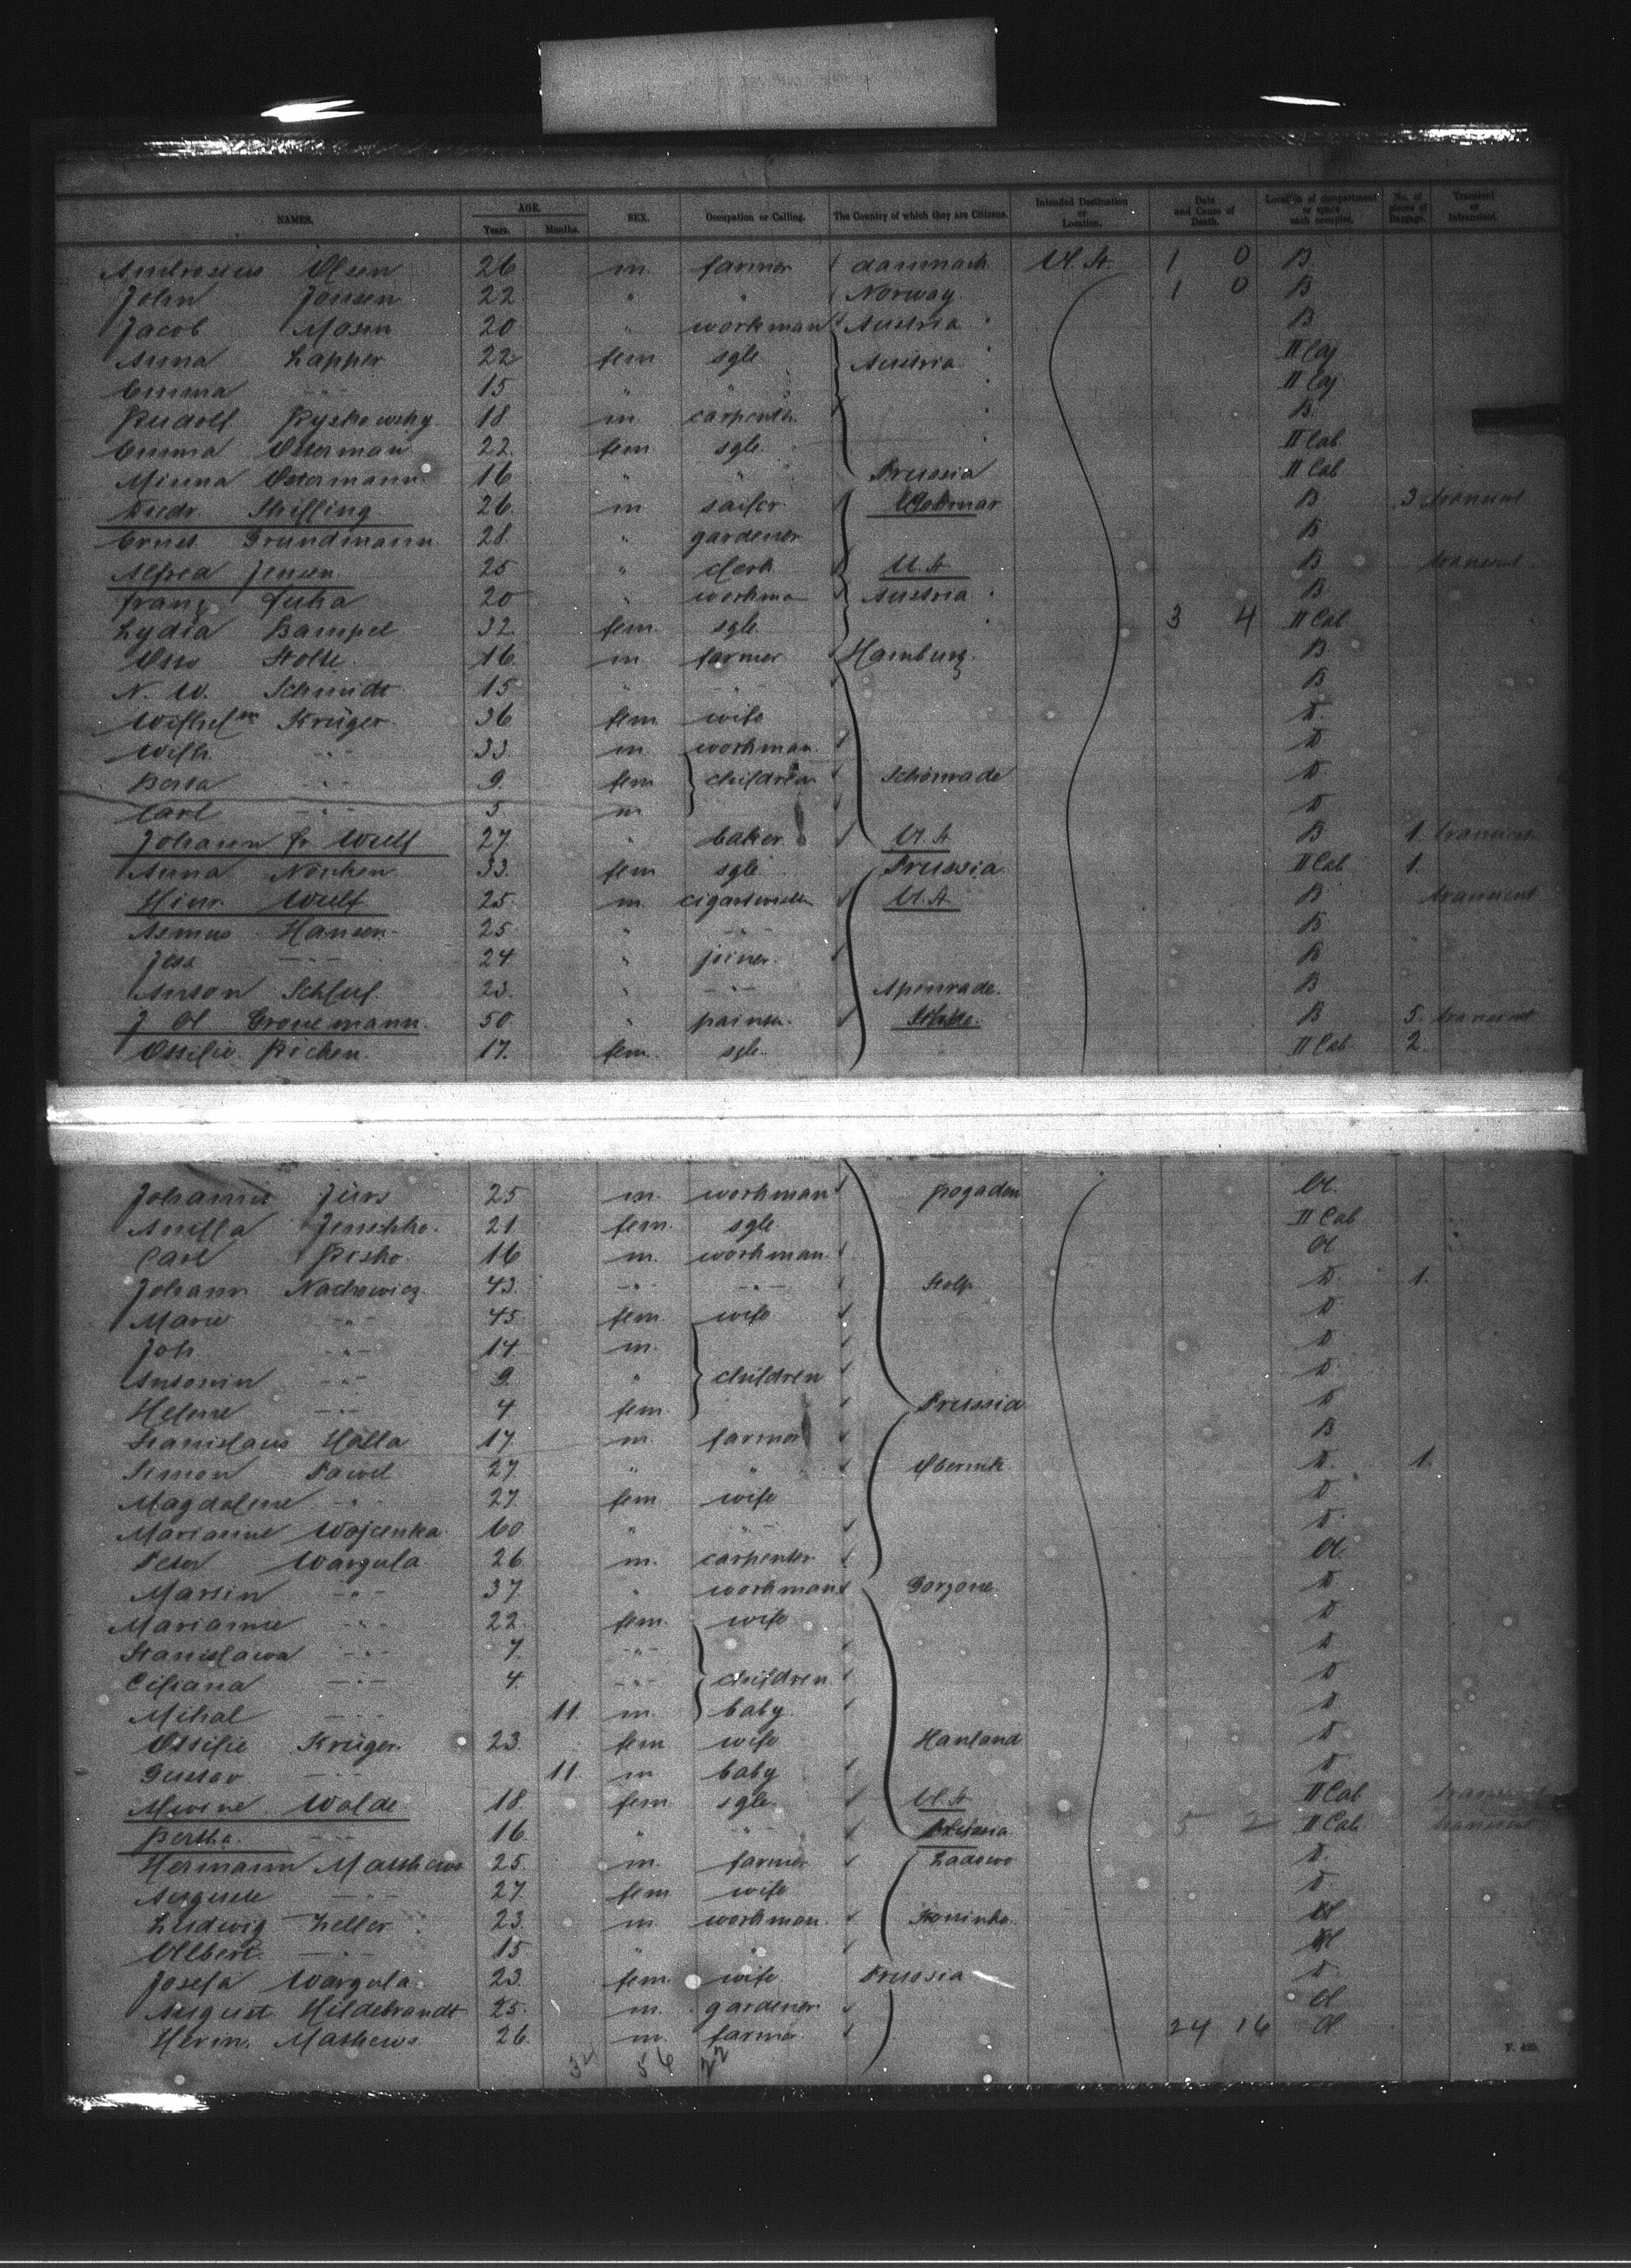 NAMES. AGE. Years. Months. SEX. Occupation or Calling. The Country of which they are Citizens. Intended Destination or Location. Date and Cause of Death. Location of compartment or space each occupied. No. of pieces of Baggage. Transient or Intransient.
Ambrosius Olsen 26 m. farmer danmark U. St. 1 0 B.
John Jonsen 22 " " Norway 1 0 B
Jacob Mosen 20 " workman Austria B
Anna Lapper 22 fem sgle Austria II Caj
Emma -"- 15 " " II Caj
Rudolf Ryskowsky 18 m. carpenter B.
Emma Osterman 22. fem sgle. II Cab
Minna Ostermann 16 " " Prussia II Cab
Diedr. Shilling 26 m sailor B 3 transient
Ernst Grundmann 28. " gardener B
Alfred Jensen 25 " clerk U. St. B transient
Franz 20 " workman Austria B.
Lydia Bampel 32 fem. sgle. 3 4 II Cab
Otto Stolte. 16. m. farmer Hamburg. B
N. W. Schmidt 15 " -"- B
Wilhelm Krüger 36 fem. wife D.
Wilh. -"- 33 m. workman. D
Berta -"- 9. fem children Schönrade D
Carl -"- 5 m. D
Johann Fr Wulf 27 " baker U. St B 1. transient
Anna 33. fem sgle. Prussia II Cab 1.
Hinr. Wulf 25 m. U. St. B transient
Asmus Hansen 25 " -"- B
Jess -"- 24 " joiner. B
Anton 23. " -"- Apenrade. B
J A Gronemann. 50 " painter. B 5. transient
Ottilie Richen. 17. fem. sgle. II Cab 2
Johannes Jürs 25 m. workman Rogaden A.
21. fem. sgle II Cab
Carl Risko 16 m. workman. A
Johann Nachowicz 43. -"- -"- Stolp D. 1.
Marie -"- 45 fem. wife D
Joh -"- 14 m. D
Antonin -"- 9. " children D
Helene -"- 4 fem. Prussia D
Stanislaus Halla 17 m. farmer B
Simon Pawel 27 " " Obernik D. 1.
Magdalene -"- 27. fem wife D
Marianne Wojcenka 60 " -"- D
Peter Wargula 26 m. carpenter A.
Martin -"- 37 " workman Gorzone. D
Marianne -"- 22. fem. wife D
Stanislawa -"- 7. -"- D
-"- 4. -"- children D
Mihal -"- 11. m. baby. D
Ottilie Krüger. 23. fem wife Hanland D
Gustav -"- 11. m baby D
Walde 18. fem. sgle U. St II Cab
Bertha -"- 16 " -"- Prussia 5 2 II Cab. transient
Hermann Matthews 25. m. farmer Ladowo D.
Auguste -"- 27. fem wife D
Ludwig Zeller 23. m. workman. Koninko. A
Albert -"- 15 " " A
Josefa Wargula. 23. fem. wife. Prussia D
August Hildebrandt 25. m. gardener. A
Herm. Mathews 26. m. farmer 24 16 A
56 22